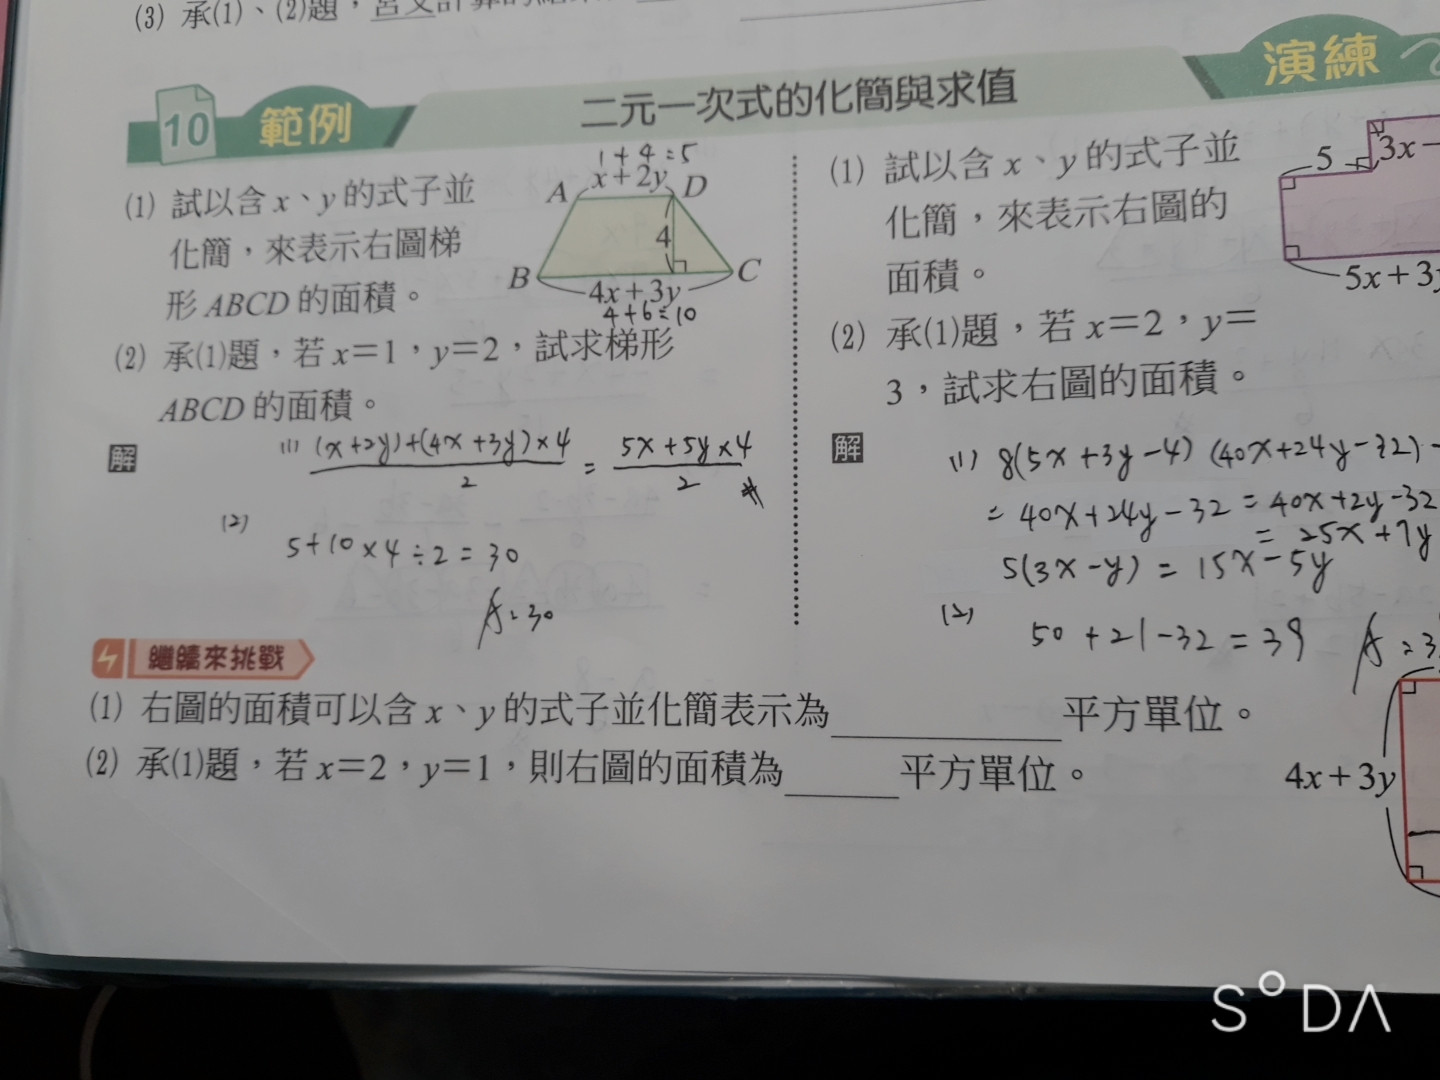 (3) 承(1)、(2)題,
10 範例
二元一次式的化簡與求值
演練
(1) 試以含 x、y 的式子並
化簡,來表示右圖梯
形 ABCD 的面積。
1+4=5
A x+2y D
4
B C
4x+3y
4+6=10
(2) 承(1)題,若 x=1,y=2,試求梯形
ABCD 的面積。
解
(1) (x+2y)+(4x+3y)×4 / 2 = 5x+5y×4 / 2
(2)
5+10×4÷2=30
A=30
(1) 試以含 x、y 的式子並
化簡,來表示右圖的
面積。
5 3x-
5x+3y
(2) 承(1)題,若 x=2,y=
3,試求右圖的面積。
解
(1) 8(5x+3y-4) (40x+24y-32)-
= 40x+24y-32 = 40x+2y-32
= 25x+7y
5(3x-y) = 15x-5y
(2)
50+21-32=39
A=3
繼續來挑戰
(1) 右圖的面積可以含 x、y 的式子並化簡表示為 平方單位。
(2) 承(1)題,若 x=2,y=1,則右圖的面積為 平方單位。
4x+3y
SODA